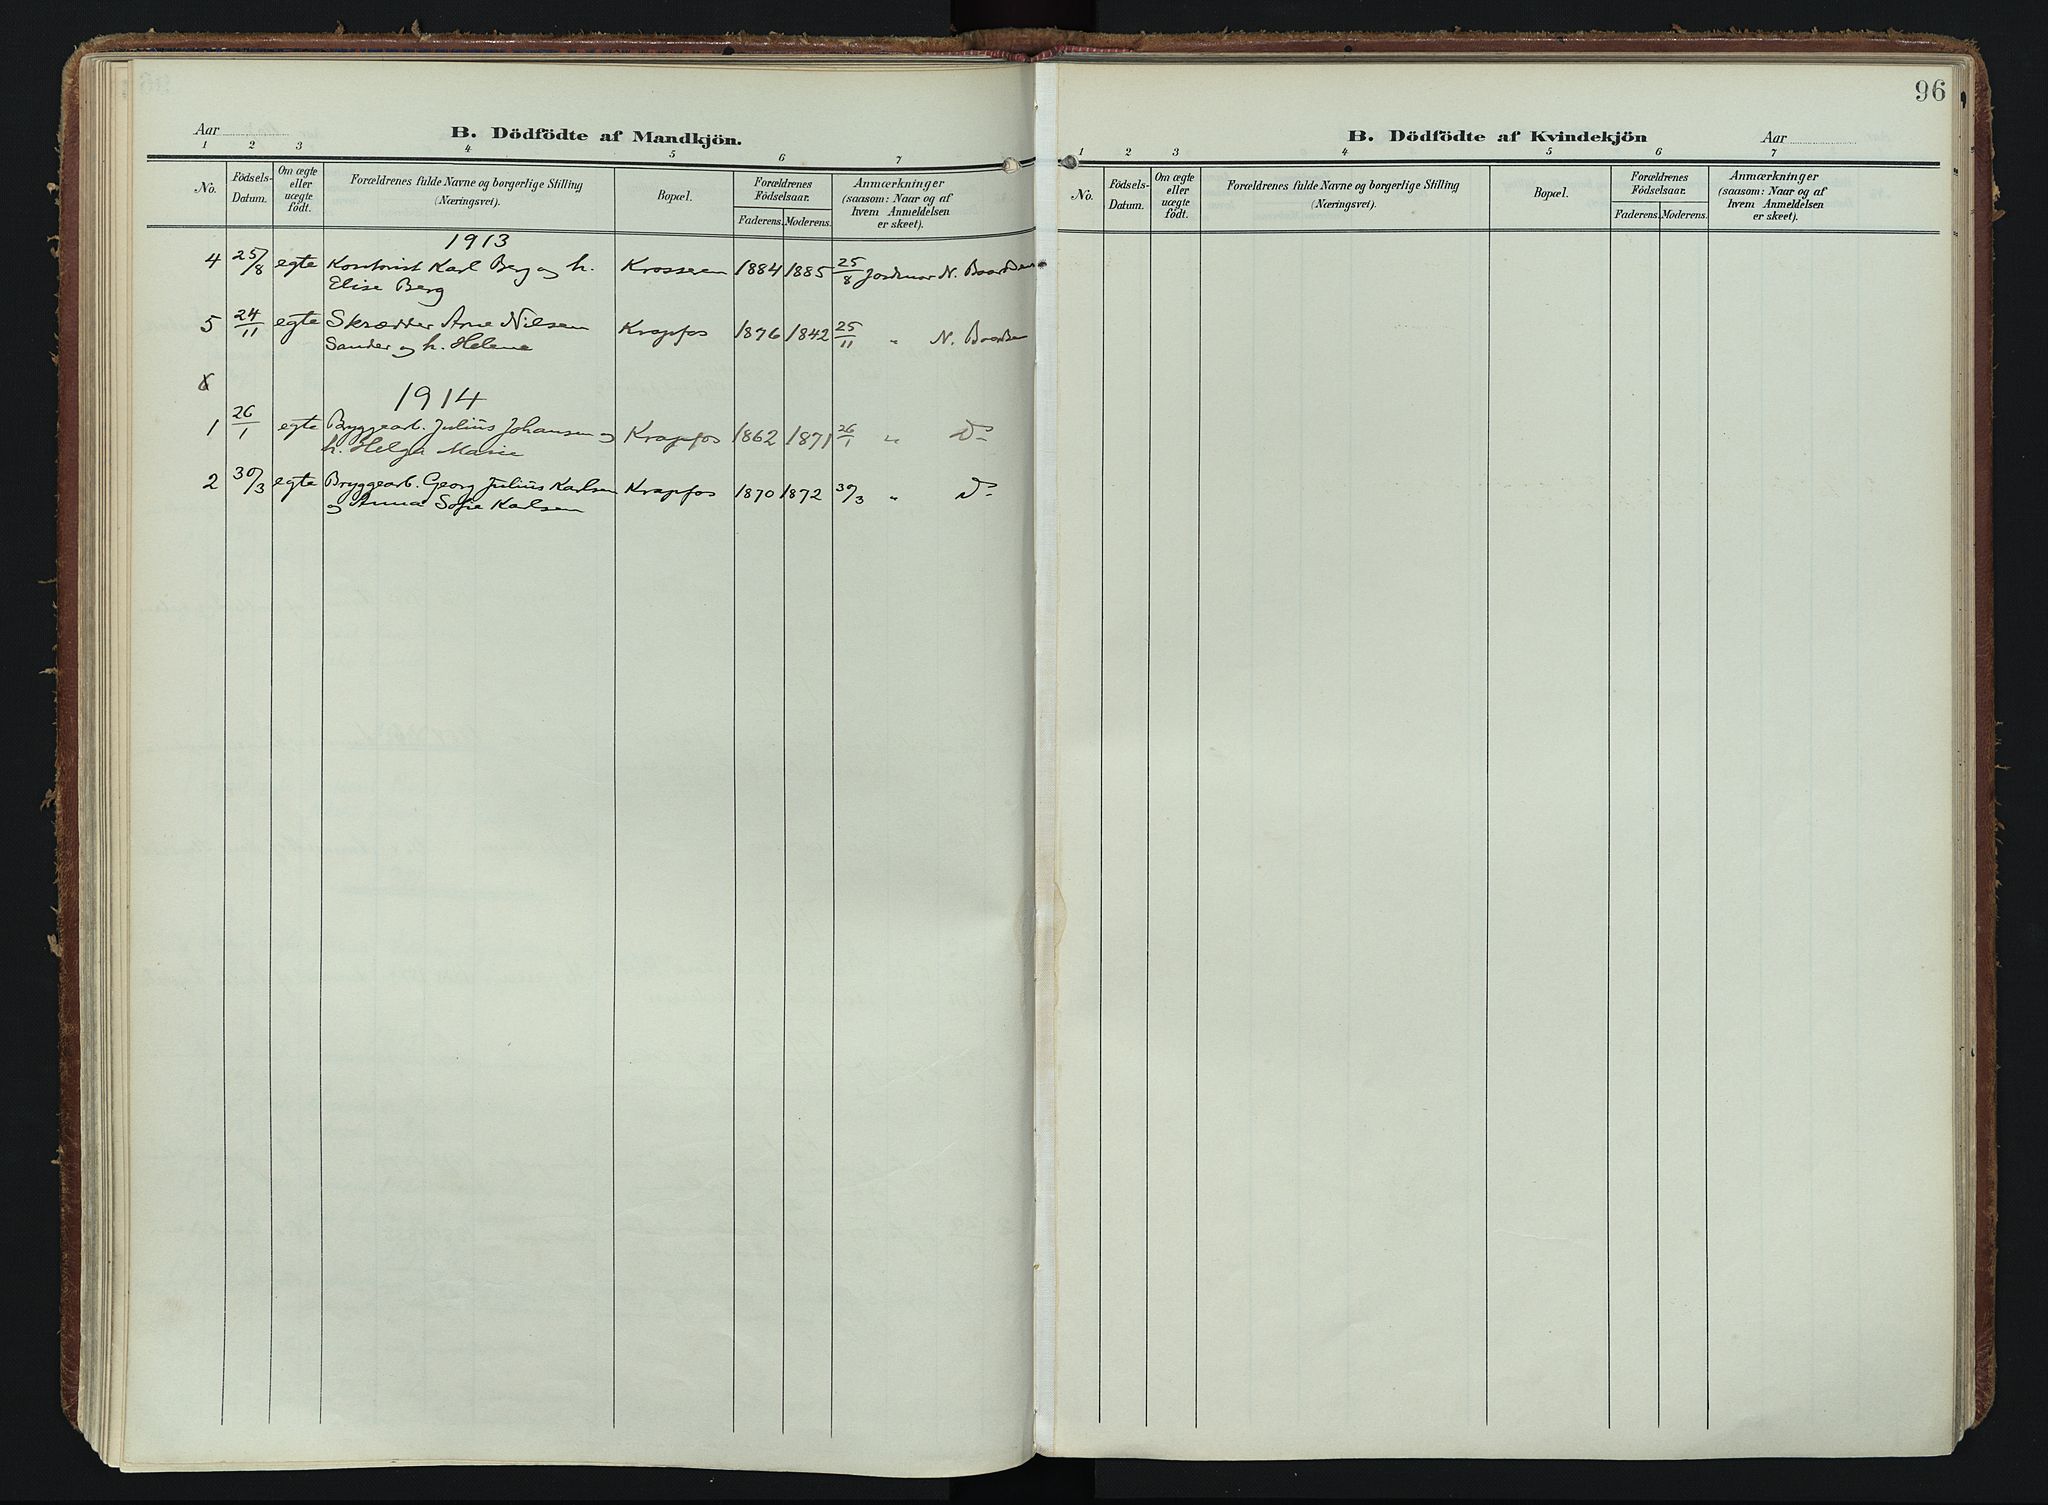 96
Aar
B. Dödfödte af Mandkjön.
1 2 3 4 5 6 7
No.
Födsels-
Datum.
Om ægte
eller
uægte
födt.
Forældrenes fulde Navne og borgerlige Stilling
(Næringsvei).
Bopæl.
Forældrenes
Födselsaar.
Faderens. Moderens.
Anmærkninger
(saasom: Naar og af
hvem Anmeldelsen
er skeet).
1913
4 25/8 egte Kontorist Karl Berg og h. Krosseen 1884 1885 25/8 Jordmor N. Baardsen
Elise Berg
5 24/11 egte Skrædder Arne Nilsen Krapfos 1876 1842 25/11 " N. Baardsen
Sander og h. Helene
6
1914
1 26/1 egte Bryggearb. Julius Johansen og Krapfos 1862 1871 26/1 " Do
h. Helga Marie
2 30/3 egte Bryggearb. Georg Julius Karlsen Krapfos 1870 1872 30/3 " Do
og Anna Sofie Karlsen
B. Dödfödte af Kvindekjön
Aar
1 2 3 4 5 6 7
No.
Födsels-
Datum.
Om ægte
eller
uægte
födt.
Forældrenes fulde Navne og borgerlige Stilling
(Næringsvei).
Bopæl.
Forældrenes
Födselsaar.
Faderens. Moderens.
Anmærkninger
(saasom: Naar og af
hvem Anmeldelsen
er skeet).